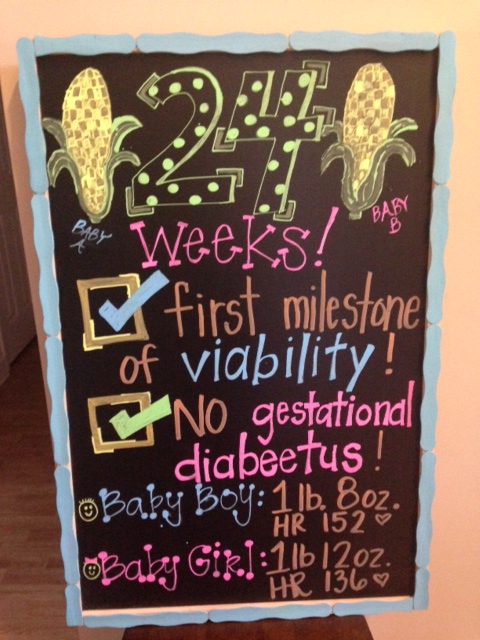 24
BABY A
BABY B
weeks!
first milestone
of viability!
NO gestational
diabeetus!
Baby Boy: 1 lb. 8oz.
HR 152 ♡
Baby Girl: 1 lb 12oz.
HR 136 ♡